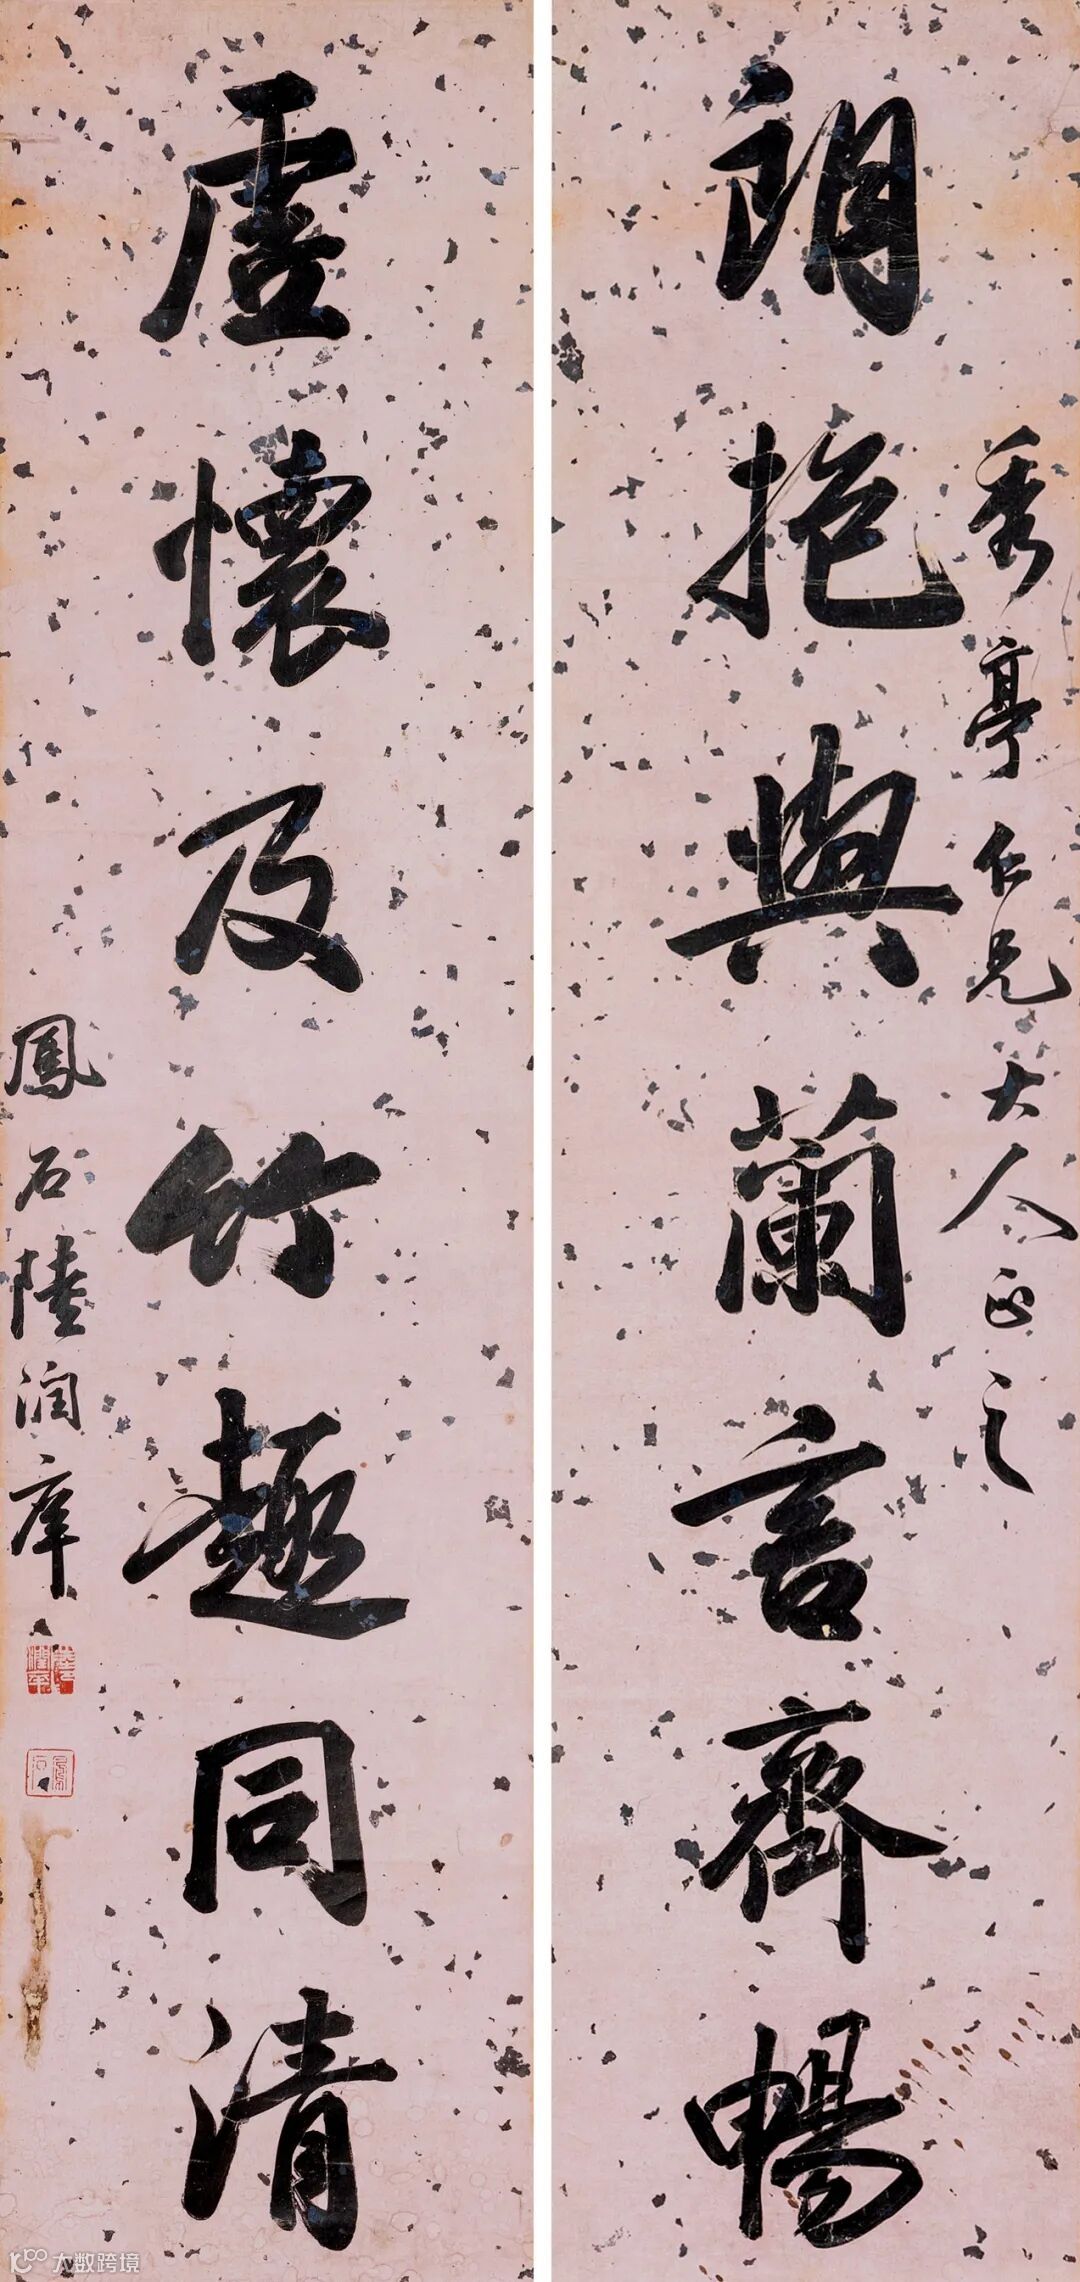 秀亭仁兄大人正之
朗抱與蘭言齊暢
虛懷及竹趣同清
鳳石陸潤庠
陸潤庠
鳳石
大数跨境